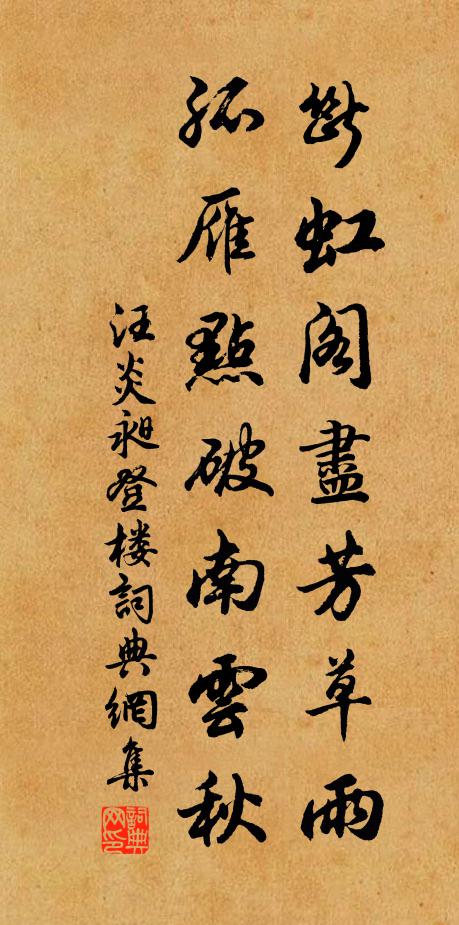 斷虹閣盡芳草雨
孤雁點破南雲秋
汪炎昶登楼詞典網集
詞典网印